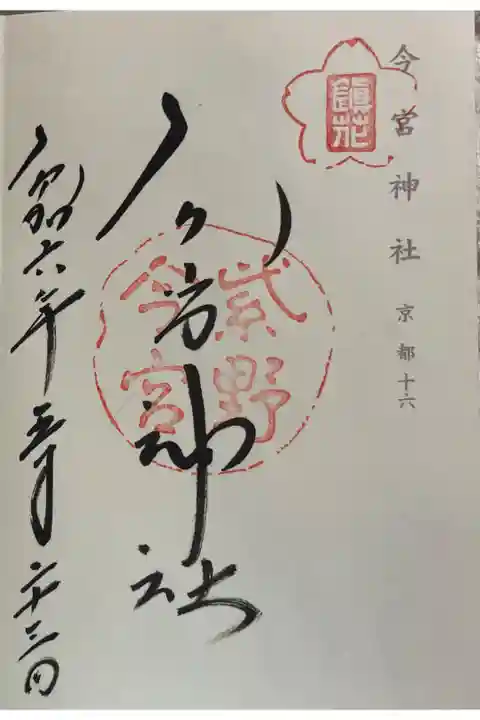 今宮神社 京都十六
鎮花
紫野
今宮
今宮神社
令和六年五月二十三日